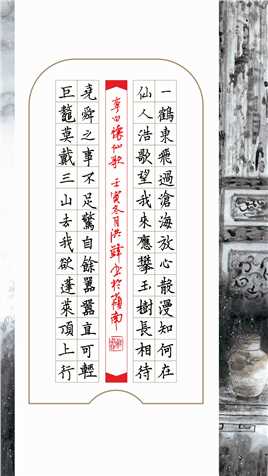 一鶴東飛過滄海放心散漫知何在
仙人浩歌望我來應攀玉樹長相待
李白懷仙歌 壬寅冬月洪 書於嶺南
堯舜之事不足驚自餘囂囂直可輕
巨鼇莫戴三山去我欲蓬萊頂上行